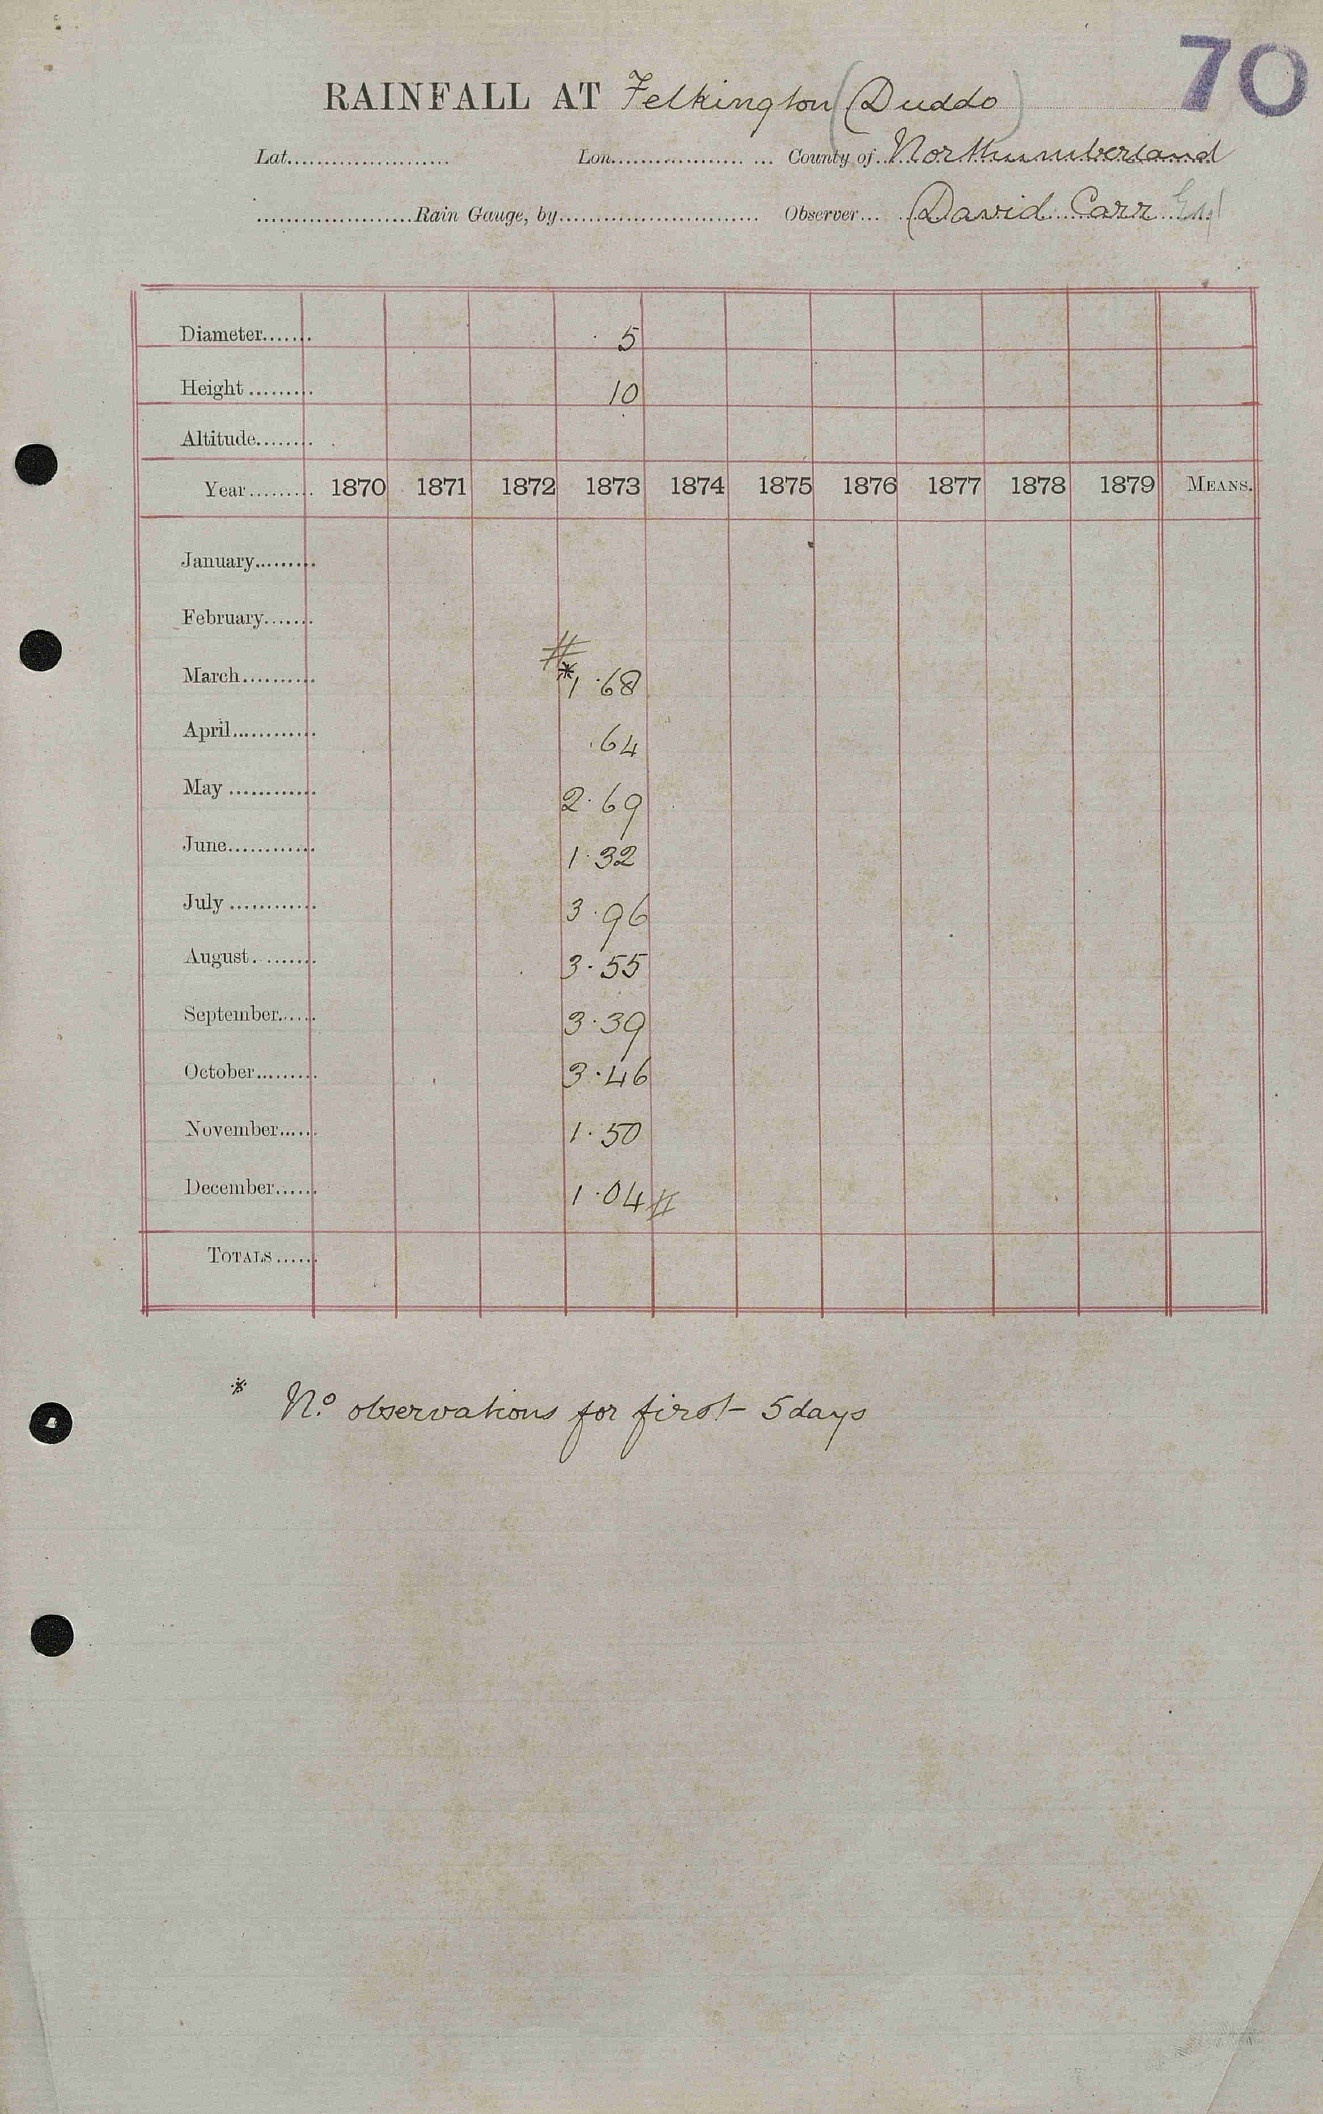 70
RAINFALL AT Felkington (Duddo)
Lat...................... Lon................... ... County of Northumberland
.....................Rain Gauge, by........................... Observer... David Carr Esq
Diameter....... 5
Height ......... 10
Altitude........
Year......... 1870 1871 1872 1873 1874 1875 1876 1877 1878 1879 MEANS.
January.........
February.......
#
March.......... *1.68
April............ .64
May ............ 2.69
June............ 1.32
July ............ 3.96
August......... 3.55
September...... 3.39
October......... 3.46
November...... 1.50
December...... 1.04 #
TOTALS ......
* No. observations for first 5 days